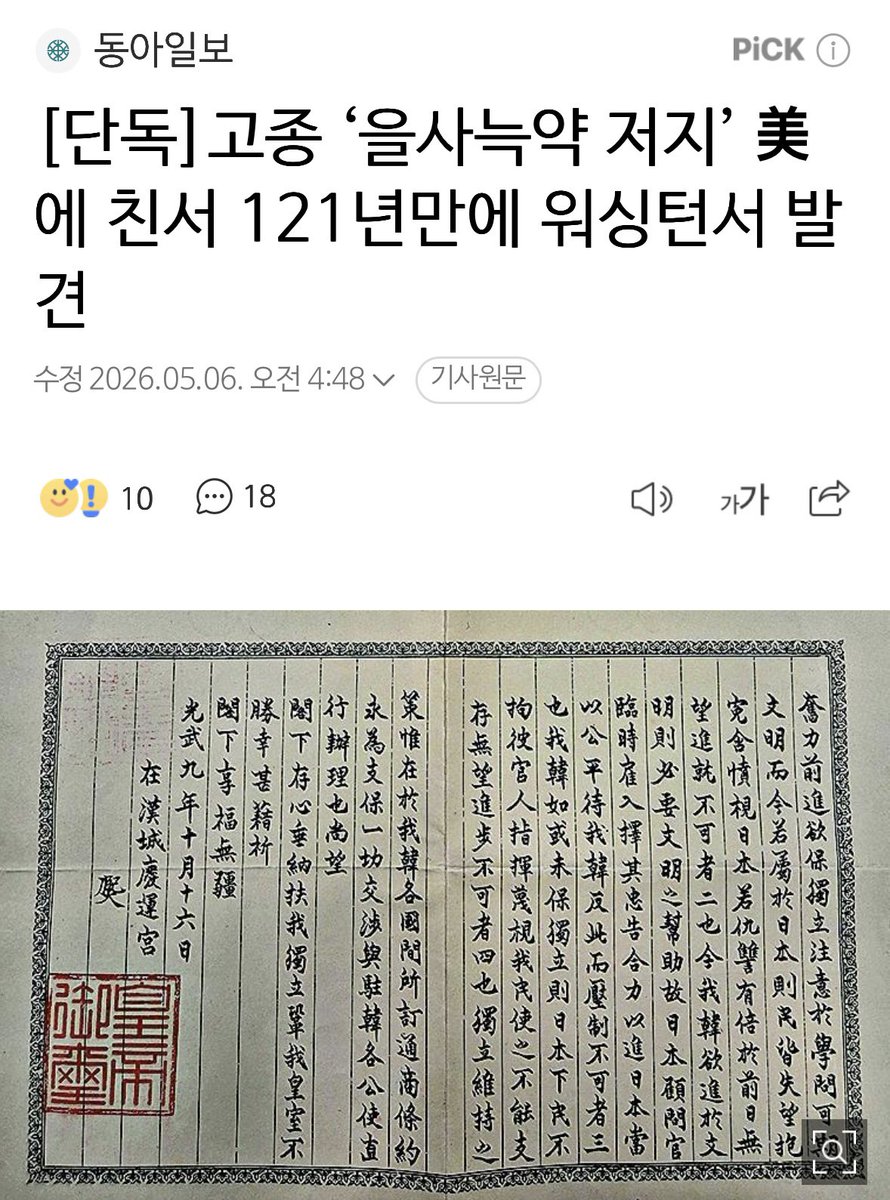 동아일보
PiCK
[단독]고종 ‘을사늑약 저지’ 美
에 친서 121년만에 워싱턴서 발
견
수정 2026.05.06. 오전 4:48
기사원문
10
18
가가
奮力前進欲保獨立注意於學問可
文明而今若屬於日本則民皆失望抱
寃含憤視日本若仇讐有倍於前日無
望進就不可者二也今我韓欲進於文
明則必要文明之幫助故日本顧問官
臨時雇入擇其忠告合力以進日本當
以公平待我韓反此而壓制不可者三
也我韓如或未保獨立則日本下民不
拘彼官人指揮蔑視我民使之不能支
存無望進步不可者四也獨立維持之
策惟在於我韓各國間所訂通商條約
永為支保一切交涉與駐韓各公使直
行辦理也尚望
閣下存心垂納扶我獨立鞏我皇室不
勝幸甚藉祈
閣下享福無疆
光武九年十月十六日
在漢城慶運宮
皇帝
御璽